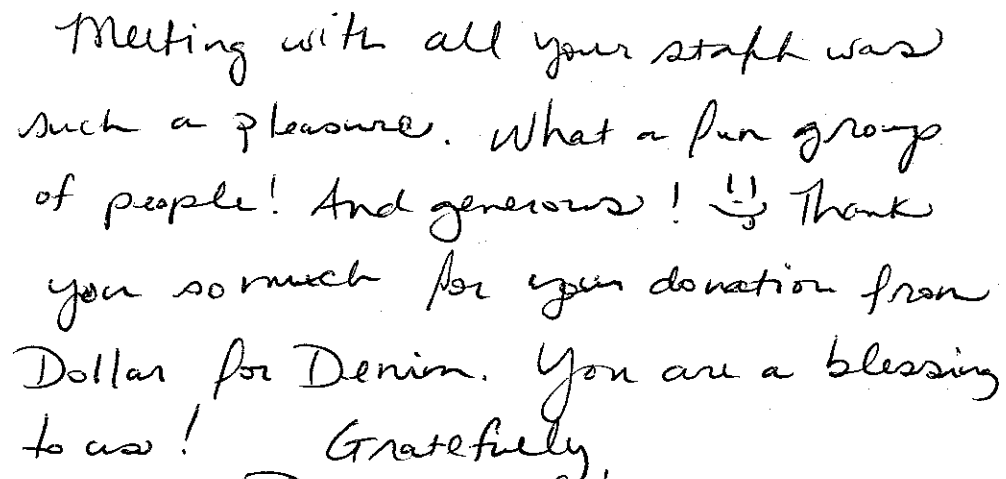 Meeting with all your staff was
such a pleasure. What a fun group
of people! And generous! Thank
you so much for your donation from
Dollar for Denim. You are a blessing
to us! Gratefully,